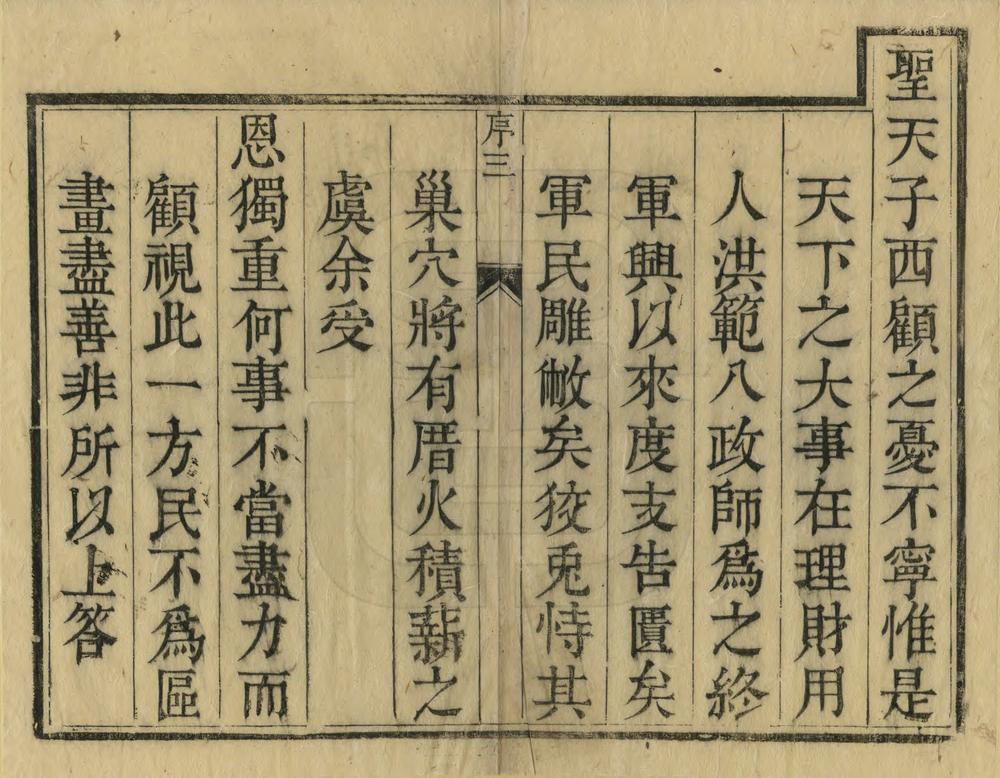 聖天子西顧之憂不寧惟是
天下之大事在理財用
人洪範八政師爲之終
軍興以來度支告匱矣
軍民雕敝矣狡兎恃其
序三
巢穴將有厝火積薪之
虞余受
恩獨重何事不當盡力而
顧視此一方民不爲區
畫盡善非所以上答